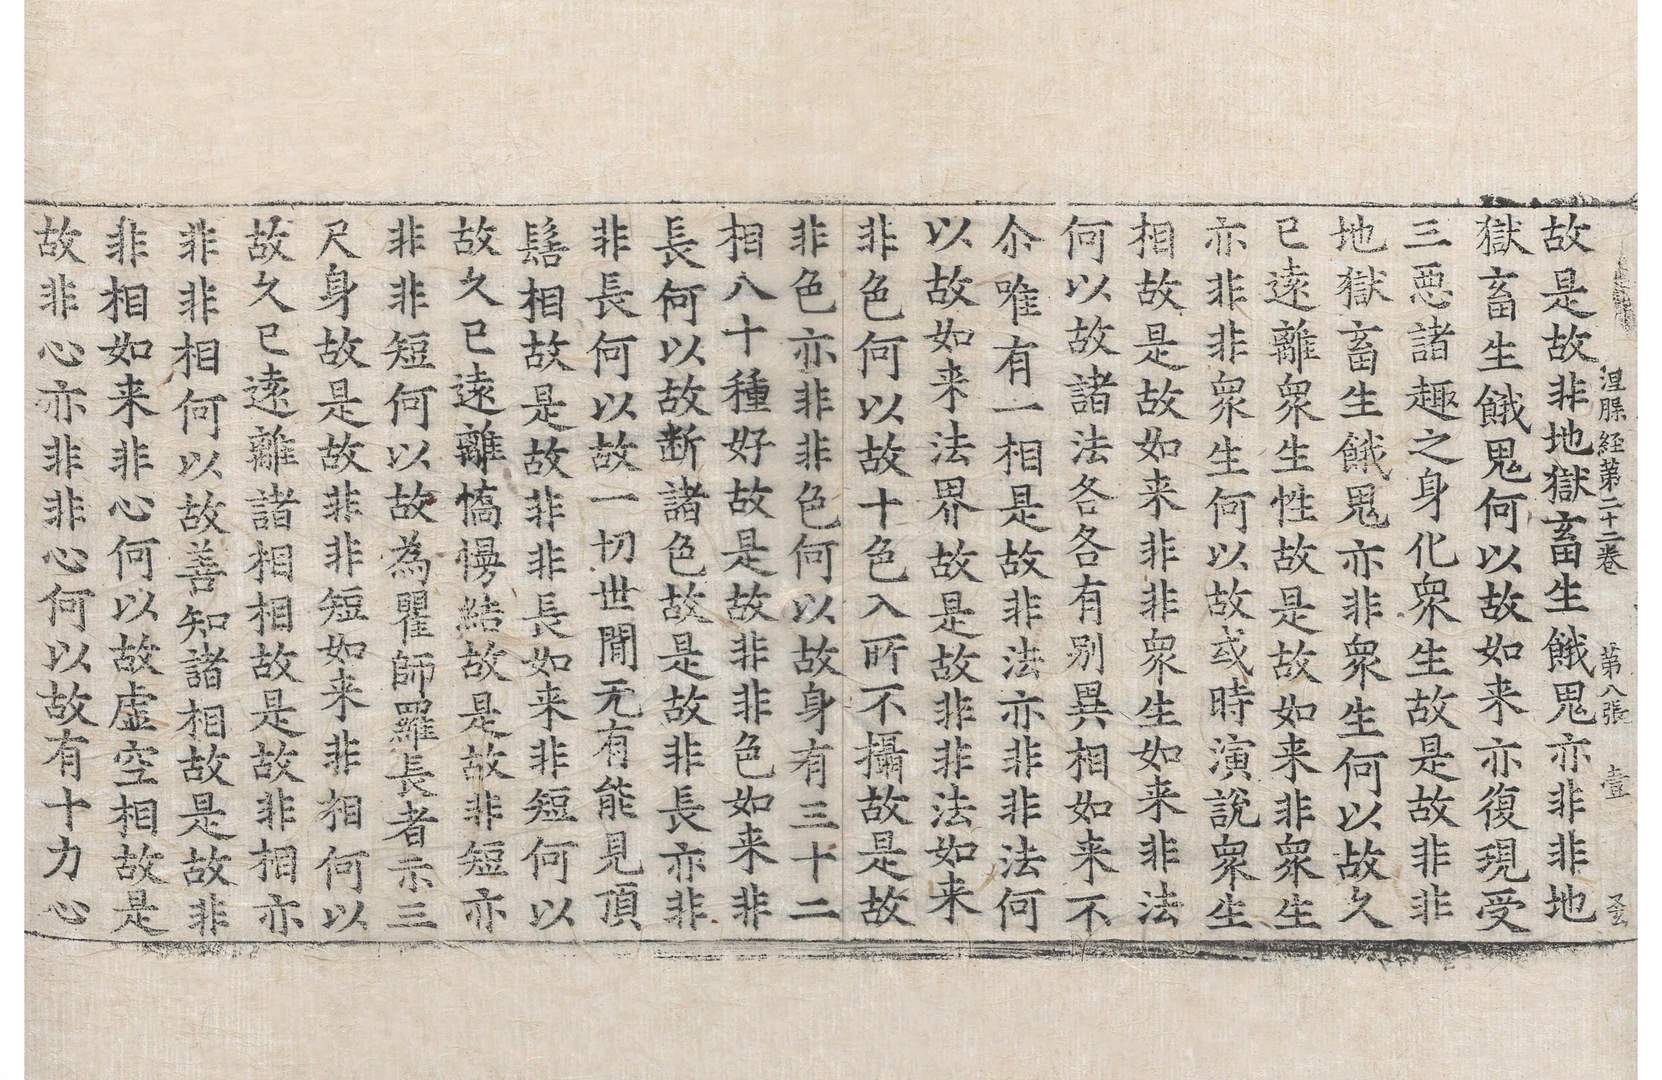 涅槃経第二十二卷 第八張 壹
故是故非地獄畜生餓鬼亦非非地
獄畜生餓鬼何以故如来亦復現受
三惡諸趣之身化衆生故是故非非
地獄畜生餓鬼亦非衆生何以故久
已遠離衆生性故是故如来非衆生
亦非非衆生何以故或時演說衆生
相故是故如来非非衆生如来非法
何以故諸法各各有別異相如来不
尒唯有一相是故非法亦非非法何
以故如来法界故是故非非法如来
非色何以故十色入所不攝故是故
非色亦非非色何以故身有三十二
相八十種好故是故非非色如来非
長何以故断諸色故是故非長亦非
非長何以故一切世間无有能見頂
髻相故是故非非長如来非短何以
故久已遠離憍慢結故是故非短亦
非非短何以故為瞿師羅長者示三
尺身故是故非非短如来非相何以
故久已遠離諸相相故是故非相亦
非非相何以故善知諸相故是故非
非相如来非心何以故虛空相故是
故非心亦非非心何以故有十力心